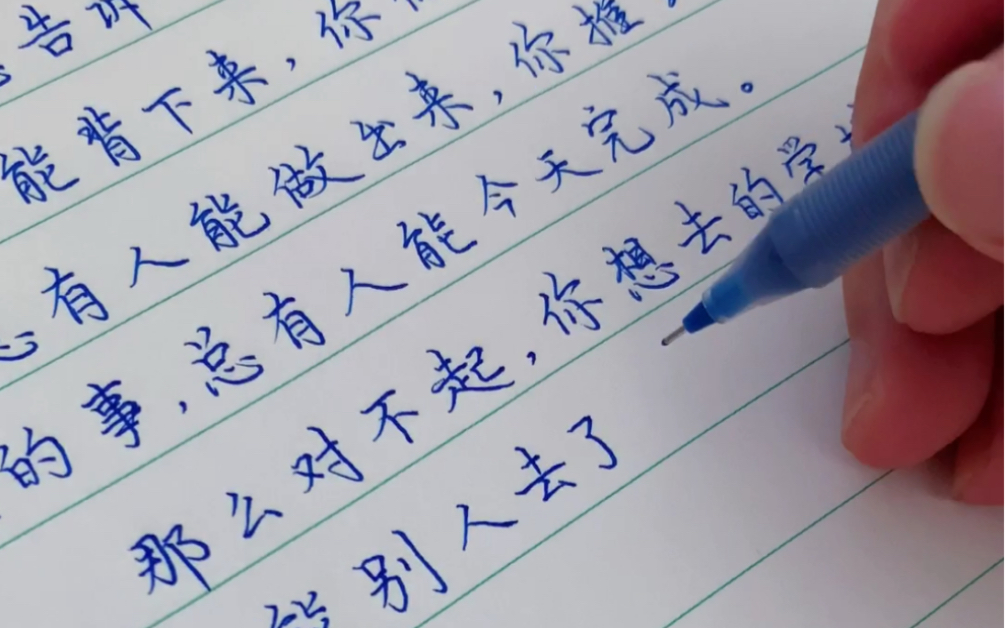 告诉
能背下来，你
有人能做出来，你推
的事，总有人能今天完成。
那么对不起，你想去的学
能别人去了